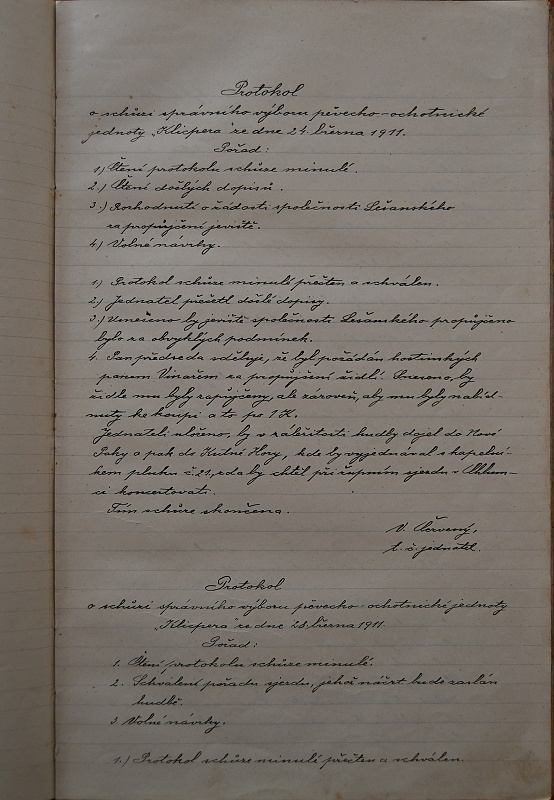 Protokol
o schůzi správního výboru pěvecko-ochotnické
jednoty „Klicpera" ze dne 24. března 1911.
Pořad:
1.) Čtení protokolu schůze minulé.
2.) Čtení došlých dopisů.
3.) Rozhodnutí o žádosti společnosti Lešanského
za propůjčení jeviště.
4.) Volné návrhy.
1) Protokol schůze minulé přečten a schválen.
2.) Jednatel přečetl došlé dopisy.
3.) Usneseno by jeviště společnosti Lešanského propůjčeno
bylo za obvyklých podmínek.
4. Pan předseda sděluje, že byl požádán hostinským
panem Vinařem za propůjčení židlí. Usneseno, by
židle mu byly zapůjčeny, ale zároveň, aby mu byly nabíd-
nuty ke koupi a to po 1 K.
Jednateli uloženo, by v záležitosti hudby dojel do Nové
Paky a pak do Kutné Hory, kde by vyjednával s kapelní-
kem pluku č. 21, zda by chtěl při župním sjezdu v Chlum-
ci koncertovati.
Tím schůze skončena.
V. Červený,
t. č. jednatel.
Protokol
o schůzi správního výboru pěvecko-ochotnické jednoty
„Klicpera" ze dne 28. března 1911.
Pořad:
1. Čtení protokolu schůze minulé.
2. Schválení pořadu sjezdu, jehož náčrt bude zaslán
hudbě.
3. Volné návrhy.
1.) Protokol schůze minulé přečten a schválen.